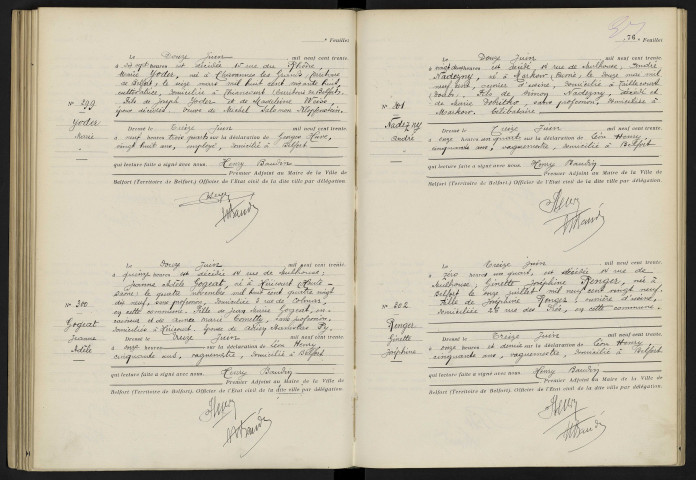 Feuillet
Le Douze Juin mil neuf cent trente,
à heures est décédée rue du Rhône,
Marie Yoder, né à Chavannes les Grands (Territoire
de Belfort), le seize mars mil huit cent
cultivatrice, domiciliée à (Territoire de Belfort).
Fille de Joseph Yoder et de Madeleine
époux décédés. Veuve de Michel Salomon
N° 299
Yoder
Marie
Dressé le Treize Juin mil neuf cent trente,
à neuf heures trois quarts sur la déclaration de Georges
vingt huit ans, employé, domicilié à Belfort
qui lecture faite a signé avec nous, Henry Baudin
Premier Adjoint au Maire de la Ville de
Belfort (Territoire de Belfort), Officier de l'Etat civil de la dite ville par délégation.
Le Douze Juin mil neuf cent trente,
à quinze heures est décédée 14 rue de Mulhouse,
Jeanne Adèle Gogeat, né à Héricourt (Haute-
Saône) le quatre novembre mil huit cent quatre vingt
neuf, sans profession, domiciliée 2 rue de Colmar,
en cette commune. Fille de Jean Marie Gogeat,
et de Marie sans profession,
domiciliés à Héricourt. Epouse de
N° 300
Gogeat
Jeanne
Adèle
Dressé le Treize Juin mil neuf cent trente,
à onze heures sur la déclaration de Léon Henry,
cinquante ans, vaguemestre, domicilié à Belfort
qui lecture faite a signé avec nous, Henry Baudin
Premier Adjoint au Maire de la Ville de
Belfort (Territoire de Belfort), Officier de l'Etat civil de la dite ville par délégation.
76 Feuillet
Le Douze Juin mil neuf cent trente,
à heures est décédé 14 rue de Mulhouse, André
Nadezny, né à Moskow (Russie) le douze mai mil
neuf cent, ouvrier d'usine, domicilié à Valdoie
(Doubs). Fils de Simon Nadezny, décédé et
de Marie sans profession, domiciliée à
Moskow. Célibataire
N° 301
Nadezny
André
Dressé le Treize Juin mil neuf cent trente,
à onze heures un quart sur la déclaration de Léon Henry,
cinquante ans, vaguemestre, domicilié à Belfort
qui lecture faite a signé avec nous, Henry Baudin
Premier Adjoint au Maire de la Ville de
Belfort (Territoire de Belfort), Officier de l'Etat civil de la dite ville par délégation.
Le Treize Juin mil neuf cent trente,
à zéro heures un quart, est décédée 14 rue de
Mulhouse, Ginette Joséphine Renger, née à
Belfort le onze juillet mil neuf cent vingt neuf.
Fille de Joséphine Renger, ouvrière d'usine,
domiciliée 26 rue des en cette commune.
N° 302
Renger
Ginette
Joséphine
Dressé le Treize Juin mil neuf cent trente,
à onze heures et demie sur la déclaration de Léon Henry,
cinquante ans, vaguemestre, domicilié à Belfort
qui lecture faite a signé avec nous, Henry Baudin
Premier Adjoint au Maire de la Ville de
Belfort (Territoire de Belfort), Officier de l'Etat civil de la dite ville par délégation.